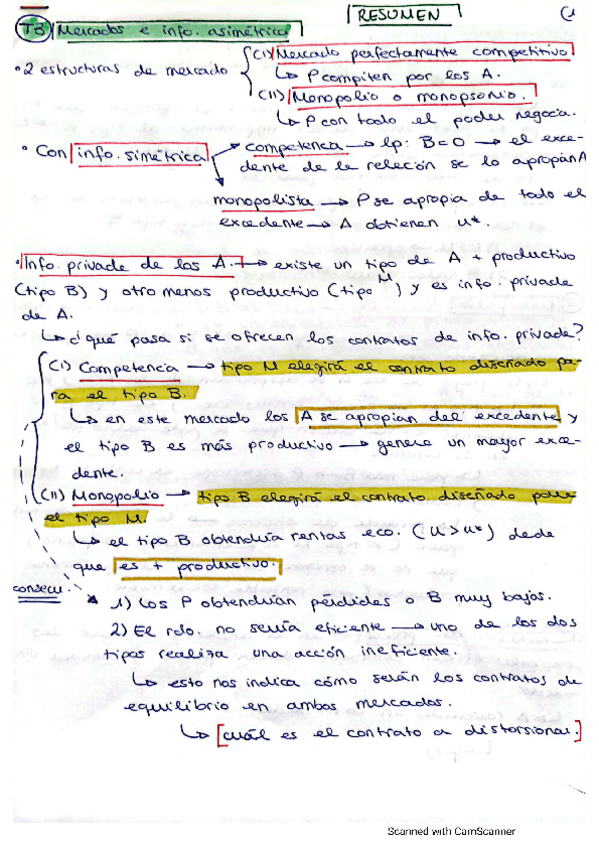 RESUMEN
T3 Mercados e info. asimétrica
• 2 estructuras de mercado
(I) Mercado perfectamente competitivo
↳ P compiten por los A.
(II) Monopolio o monopsonio.
↳ P con todo el poder negocia.
• Con info. simétrica
competencia → lp: B=0 → el exce-
dente de la relación se lo apropian A
monopolista → P se apropia de todo el
excedente → A obtienen u*.
• Info. privada de los A. → existe un tipo de A + productivo
(tipo B) y otro menos productivo (tipo M) y es info. privada
de A.
↳ ¿qué pasa si se ofrecen los contratos de info. privada?
(I) Competencia → tipo M elegirá el contrato diseñado pa-
ra el tipo B.
↳ en este mercado los A se apropian del excedente y
el tipo B es más productivo → genera un mayor exce-
dente.
(II) Monopolio → tipo B elegirá el contrato diseñado para
el tipo M.
↳ el tipo B obtendría rentas eco. (u>u*) dado
que es + productivo.
consecu.
1) Los P obtendrían pérdidas o B muy bajos.
2) El rdo. no sería eficiente → uno de los dos
tipos realiza una acción ineficiente.
↳ esto nos indica cómo serán los contratos de
equilibrio en ambos mercados.
↳ [cuál es el contrato a distorsionar.]
Scanned with CamScanner